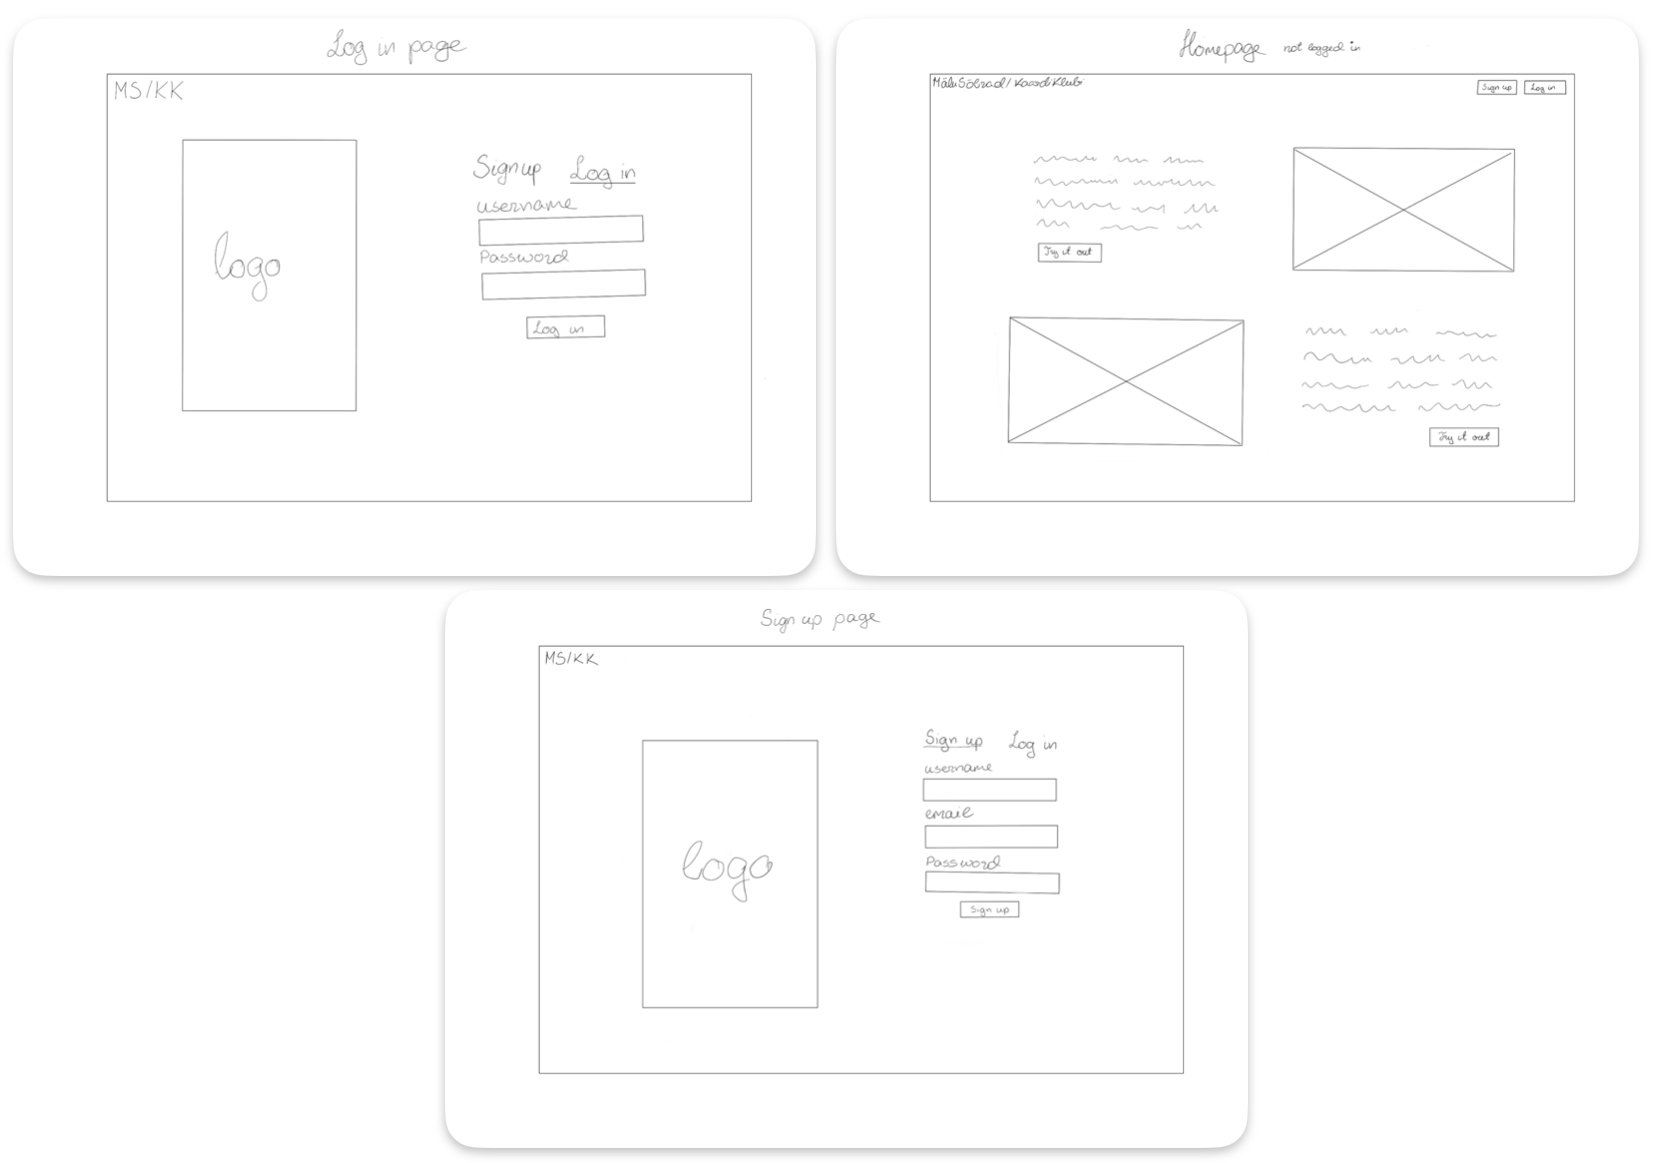 Log in page
MS/KK
logo
Sign up Log in
username
Password
Log in
Homepage not logged in
MäluSõbrad/KaardiKlubi
Sign up Log in
Try it out
Try it out
Sign up page
MS/KK
logo
Sign up Log in
username
email
Password
Sign up